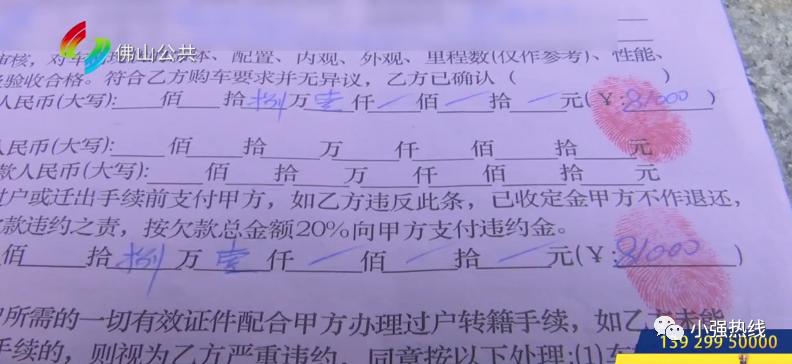 佛山公共
体、配置、内观、外观、里程数(仅作参考)、性能、
验收合格。符合乙方购车要求并无异议,乙方已确认( )
人民币(大写):___佰___拾捌万壹仟一佰一拾一元(¥:81000)
人民币(大写):___佰___拾___万___仟___佰___拾___元
款人民币(大写):___佰___拾___万___仟___佰___拾___元
户或迁出手续前支付甲方,如乙方违反此条,已收定金甲方不作退还,
款违约之责,按欠款总金额20%向甲方支付违约金。
佰___拾捌万壹仟一佰一拾一元(¥:81000)
所需的一切有效证件配合甲方办理过户转籍手续,如乙方未能
手续的,则视为乙方严重违约,同意按以下处理:(1)车
小强热线
139 299 50000